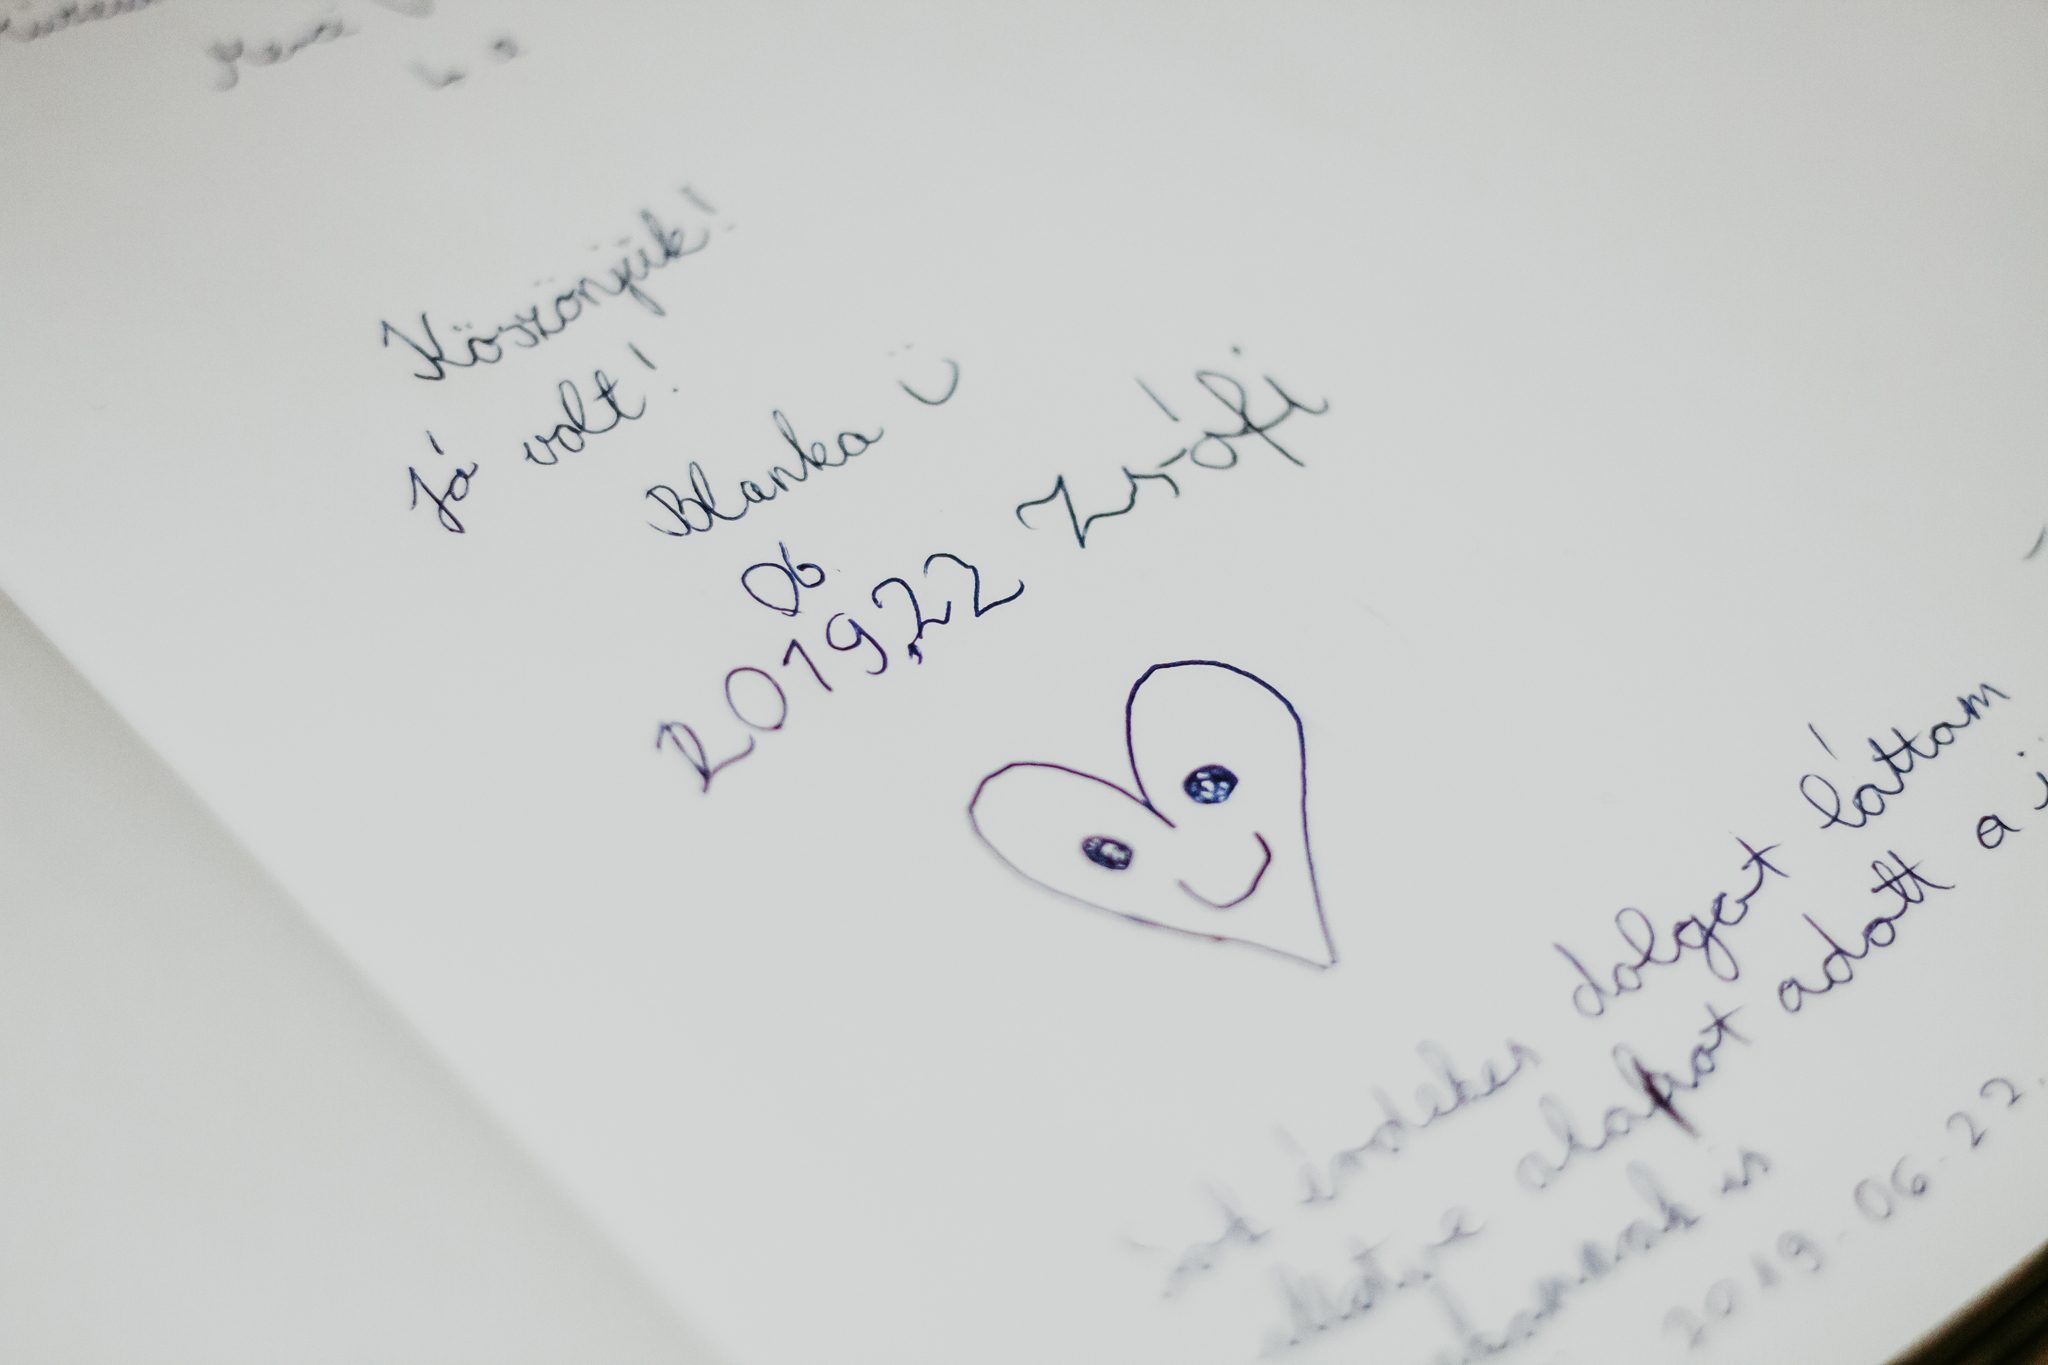 Köszönjük!
Jó volt!
Blanka Ü
06
2019,22 Zsófi
sok érdekes dolgot láttam
alapot adott a
is
2019.06.22.